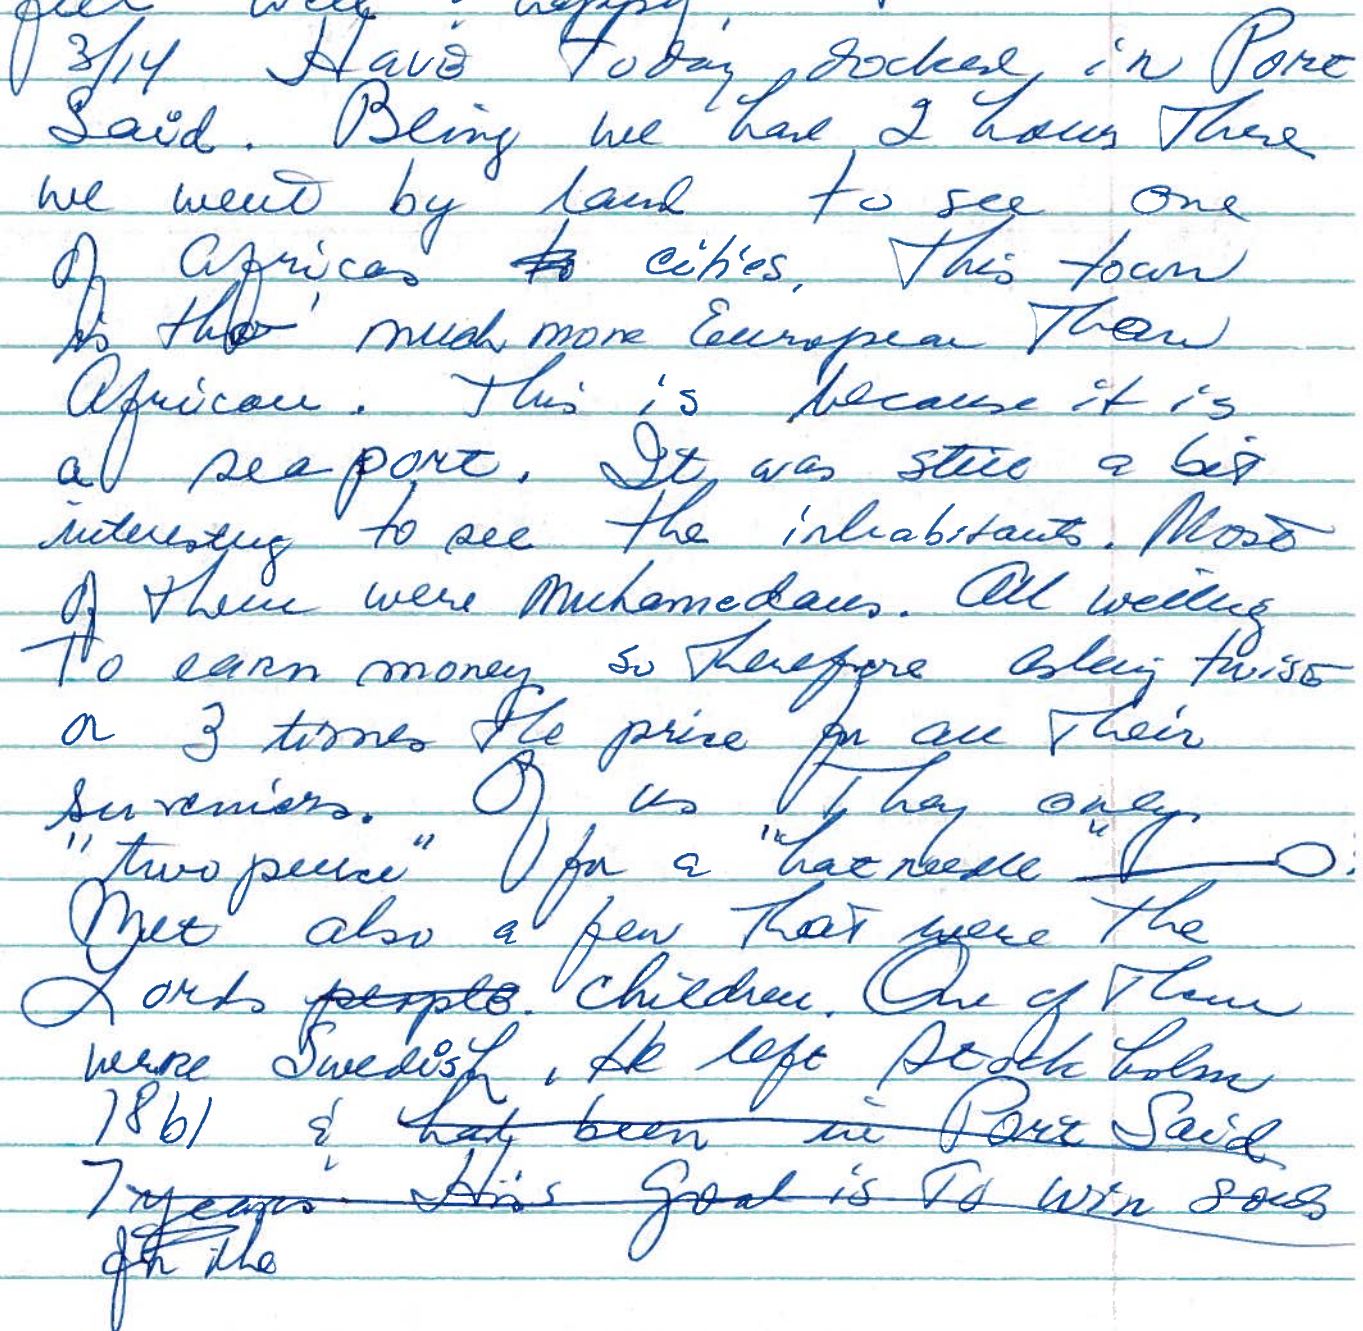 feel well & happy.
3/14 Have today docked in Port
Said. Being we had 2 hours there
we went by land to see one
of Africas to cities. This town
is tho' much more European than
African. This is because it is
a seaport. It was still a bit
interesting to see the inhabitants. Most
of them were Muhamedans. All willing
to earn money so therefore asking twise
or 3 times the price for all their
suveniers. Of us they only
"two pence" for a "hat needle"
Met also a few that were the
Lords people. children. One of them
were Swedish, He left Stockholm
1861 & had been in Port Said
7 years. His Goal is to win souls
for the